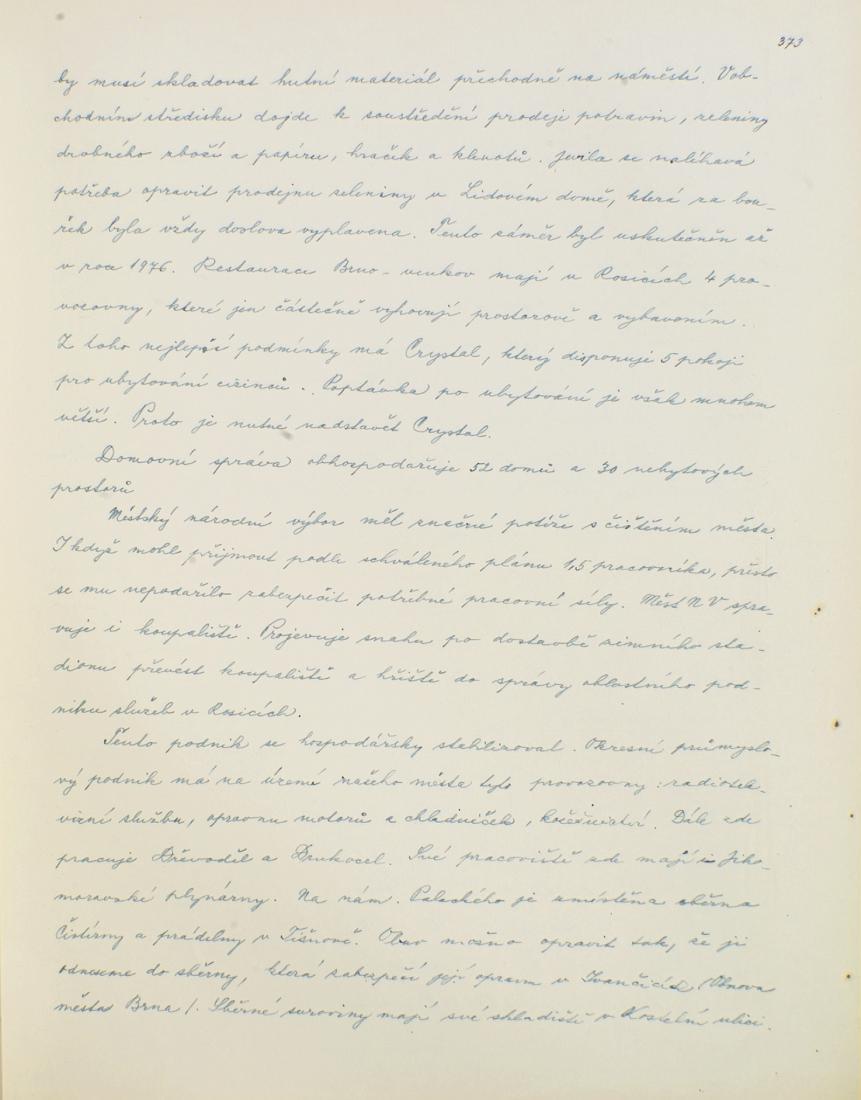 373
by musí skladovat hutní materiál přechodně na náměstí. Vob-
chodním středisku dojde k soustředění prodeje potravin, zeleniny
drobného zboží a papíru, hraček a klenotů. Jevila se naléhavá
potřeba opravit prodejnu zeleniny v Lidovém domě, která za bou-
řek byla vždy doslova vyplavena. Tento záměr byl uskutečněn až
v roce 1976. Restaurace Brno - venkov mají v Rosicích 4 pro-
vozovny, které jen částečně vyhovují prostorově a vybavením.
Z toho nejlepší podmínky má Crystal, který disponuje 5 pokoji
pro ubytování cizinců. Poptávka po ubytování je však mnohem
větší. Proto je nutné nadstavět Crystal.
Domovní správa obhospodařuje 52 domů a 30 nebytových
prostorů
Městský národní výbor měl značné potíže s čištěním města.
I když mohl přijmout podle schváleného plánu 1,5 pracovníka, přesto
se mu nepodařilo zabezpečit potřebné pracovní síly. Měst N V spra-
vuje i koupaliště. Projevuje snahu po dostavbě zimního sta-
dionu převést koupaliště a hřiště do správy oblastního pod-
niku služeb v Rosicích.
Tento podnik se hospodářsky stabilizoval. Okresní průmyslo-
vý podnik má na území našeho města tyto provozovny: radiotele-
vizní službu, opravnu motorů a chladniček, kožešnictví. Dále zde
pracuje Dřevoděl a Drukocel. Své pracoviště zde mají i Jiho-
moravské plynárny. Na nám. Palackého je umístěna sběrna
Čistírny a prádelny v Tišnově. Obuv možno opravit tak, že ji
odneseme do sběrny, která zabezpečí její opravu v Ivančicích /Obnova
města Brna/. Sběrné suroviny mají své skladiště v Kostelní ulici.